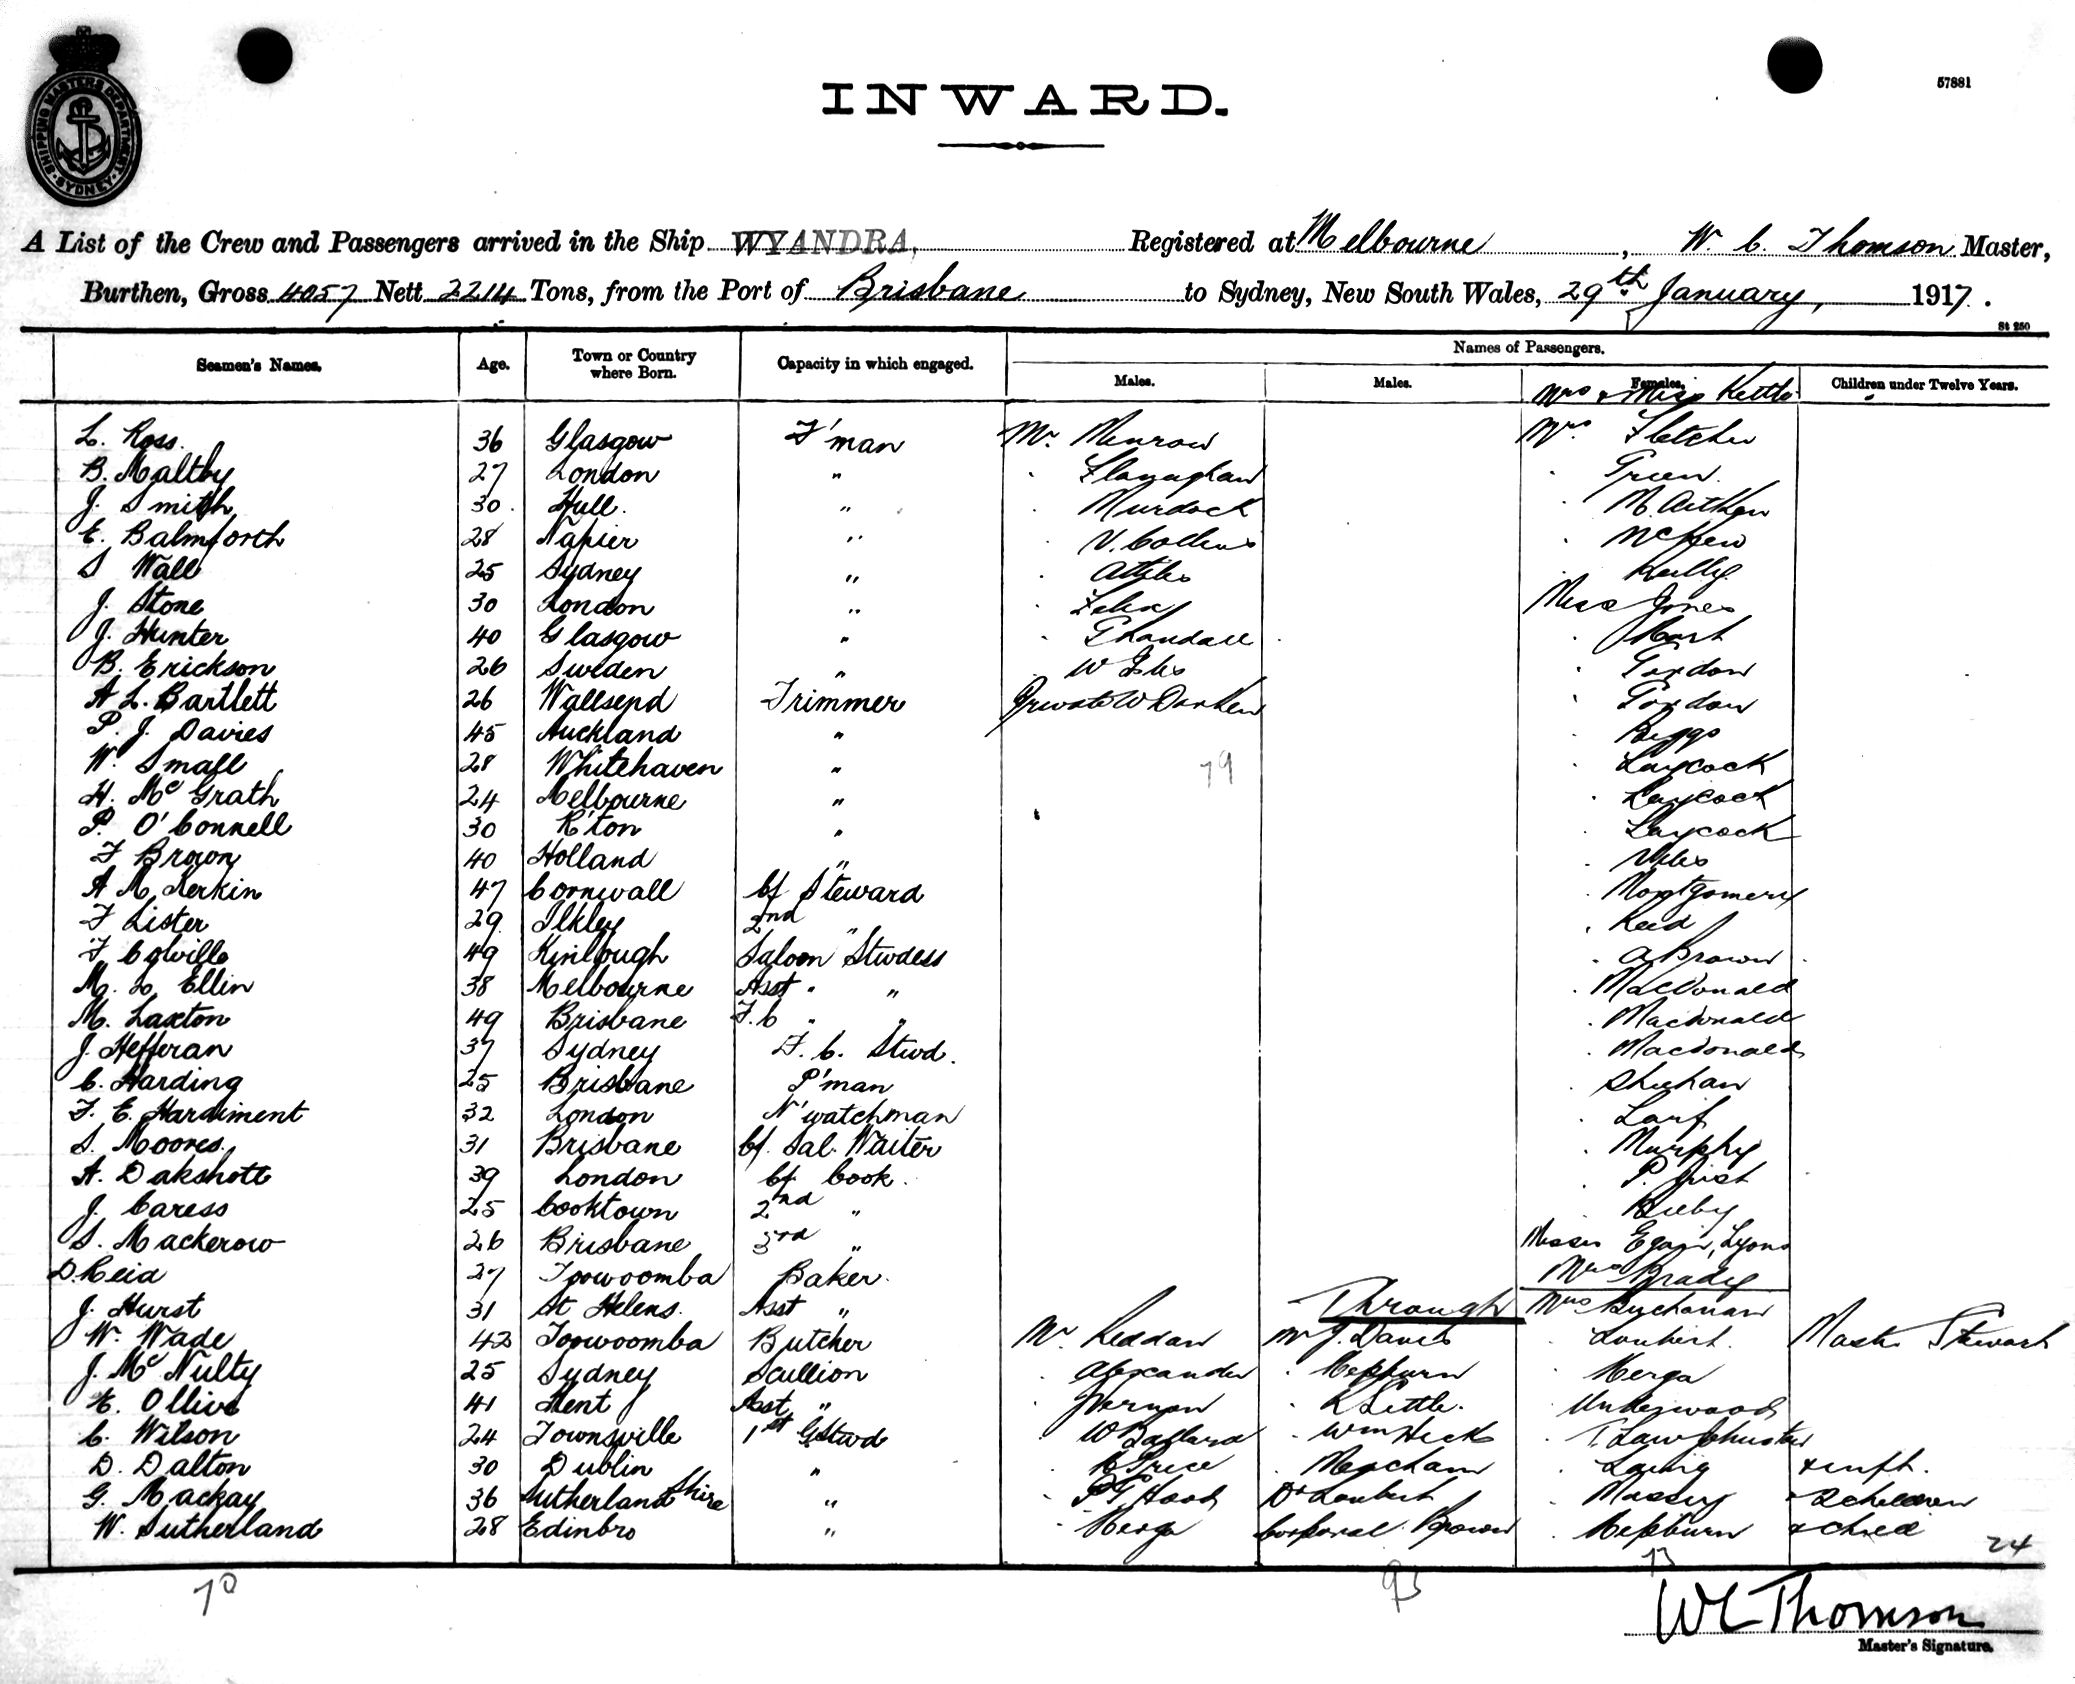 SHIPPING MASTERS DEPARTMENT
SYDNEY
57881
INWARD.
A List of the Crew and Passengers arrived in the Ship WYANDRA, Registered at Melbourne, W. C. Thomson Master,
Burthen, Gross 4057 Nett 2214 Tons, from the Port of Brisbane to Sydney, New South Wales, 29th January, 1917.
St 250
Seamen's Names. Age. Town or Country where Born. Capacity in which engaged. Names of Passengers.
Males. Males. Females. Children under Twelve Years.
Mrs & Miss Kettle
L. Ross. 36 Glasgow F'man Mr. Munrow Mrs. Fletcher
B. Maltby 27 London " Flanaghan Green
J. Smith 30 Hull. " Murdock M. Aitken
E. Balmforth 28 Napier " V. Collins
S Wall 25 Sydney " Reilly
J. Stone 30 London " Felix Miss Jones
J. Hunter 40 Glasgow "
B. Erickson 26 Sweden " W
A L. Bartlett 26 Wallsend Trimmer Private W Gordon
P. J. Davies 45 Auckland " Biggs
W. Small 28 Whitehaven " 79 Laycock
H. McGrath 24 Melbourne " Laycock
P. O'Connell 30 R'ton " Laycock
F Brown 40 Holland "
A M. Kerkin 47 Cornwall Cf Steward Montgomery
F Lister 29 Ilkley 2nd " Reid
F Colville 49 Kinlough Saloon Stwdess A Brown
M. L Ellin 38 Melbourne Asst " " MacDonald
M. Laxton 49 Brisbane F.C " " MacDonald
J. Hefferan 37 Sydney F. C. Stwd. MacDonald
C. Harding 25 Brisbane P'man Sheehan
F. E. Hardiment 32 London N'watchman
S. Moores 31 Brisbane Cf. Sal. Waiter Murphy
A. Oakshott 39 London Cf Cook.
J. Caress 25 Cooktown 2nd "
S. Mackerow 26 Brisbane 3rd " Misses Egan, Lyons
D. Reid 27 Toowoomba Baker. Mrs Brady
J. Hurst 31 St Helens. Asst " Through Mrs Buchanan
W. Wade 43 Toowoomba Butcher Mr Reddan Mr J. Davis Loubert. Master Stewart
J. McNulty 25 Sydney Scullion Alexander Hepburn Herga
E. Ollive 41 Kent Asst " Vernon Underwood
C. Wilson 24 Townsville 1st G Stwd W Ballard Wm Hicks T. Law Johnston
D. Dalton 30 Dublin " Meacham Laing & inft.
G. Mackay 36 Sutherland Shire " P T Hood Dr Loubert Massey & 2 children
W. Sutherland 28 Edinbro " Herga Corporal Brown Hepburn & child
24
70 93 73
WC Thomson
Master's Signature.